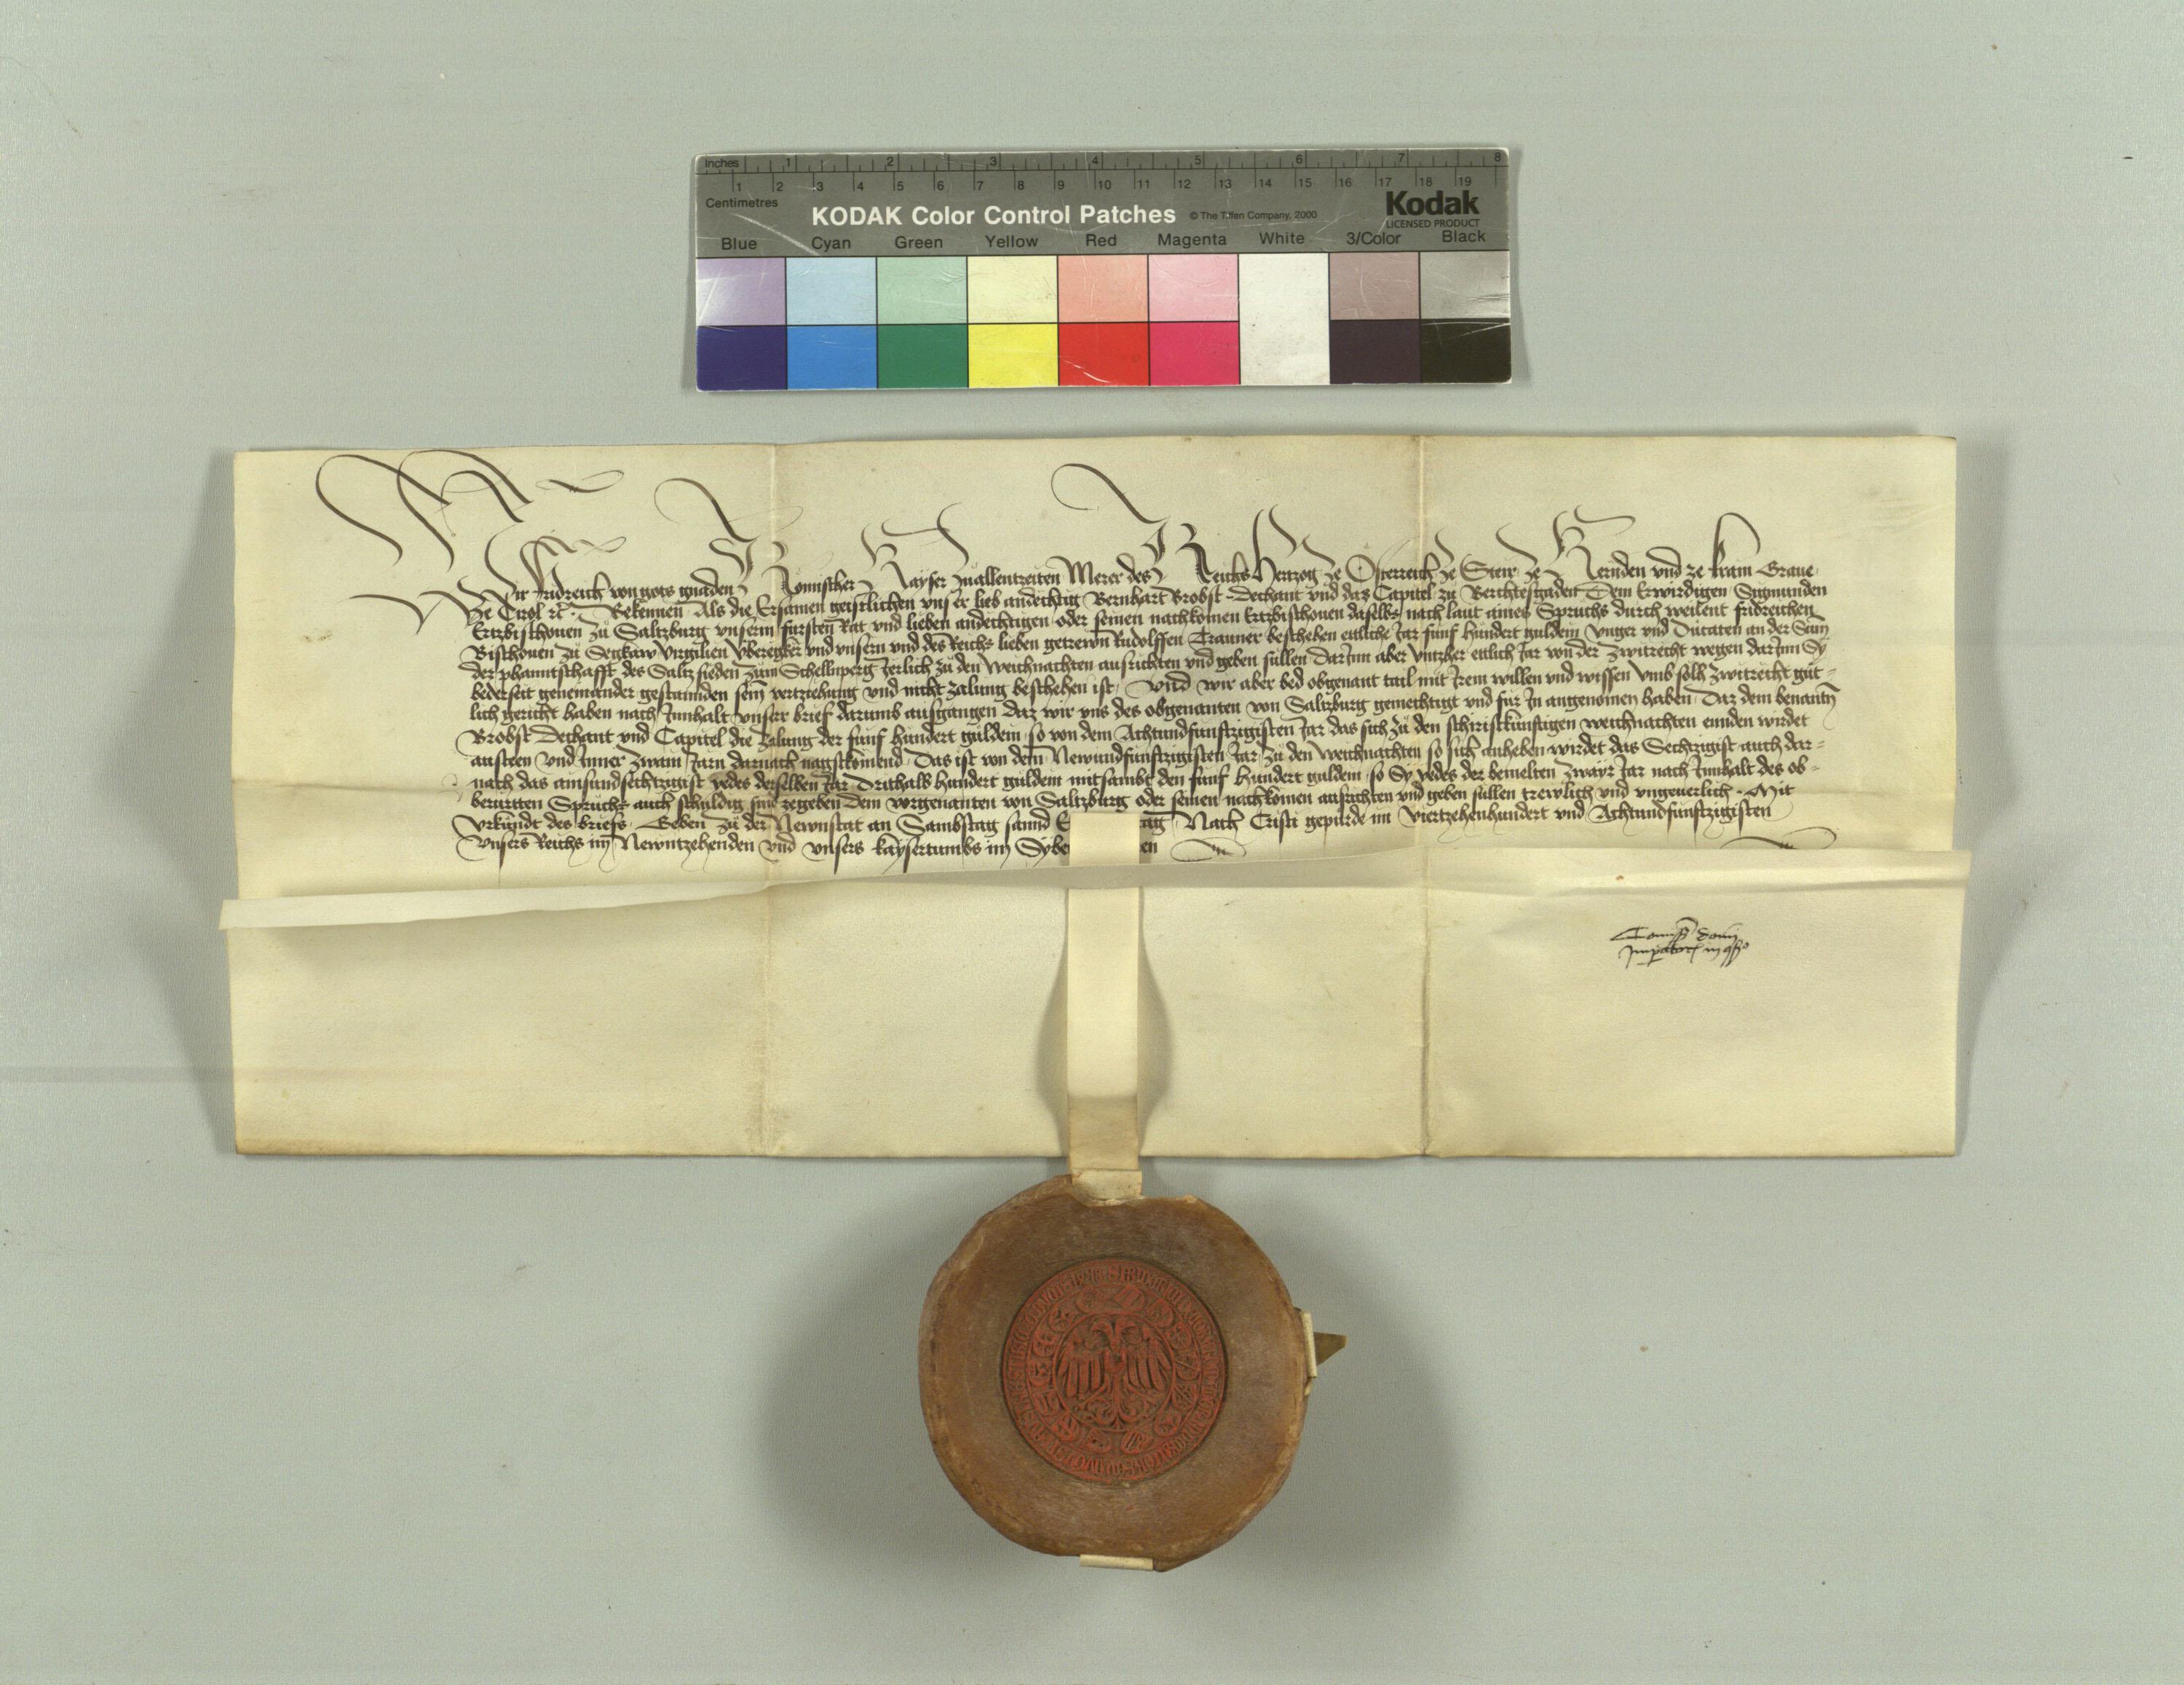 Inches 1 2 3 4 5 6 7 8
1 2 3 4 5 6 7 8 9 10 11 12 13 14 15 16 17 18 19
Centimetres
KODAK Color Control Patches © The Tiffen Company, 2000 Kodak
LICENSED PRODUCT
Blue Cyan Green Yellow Red Magenta White 3/Color Black
Wir Fridreich von gots gnaden Römischer Kayser zuallentzeiten Merer des Reichs Hertzog ze Österreich ze Steir ze Kernden vnd ze Krain Graue
ze Tirol etc. Bekennen Als die Ersamen geistlichen vnser lieb andechtig Bernhart Brobst Dechant vnd daz Capitel zu Berchtesgaden Dem Erwirdigen Sigmunden
Ertzbischouen zu Saltzburg vnserm fürsten Rat vnd lieben andechtigen oder seinen nachkomen Ertzbischouen daselbs nach laut aines Spruchs durch weilent fridreichen
Bischouen zu Segkaw Virgilien Vberegker vnd vnsern vnd des Reichs lieben getrewn Rudolffen Trauner bescheben ettliche Jar fünf hundert guldein Vnger vnd Ducaten an der Sum
der phanntschafft des Saltz sieden zum Schellnperg Jerlich zu den Weichnachten ausrichten vnd geben süllen Darinn aber vntzher ettlich Jar von der zwitrecht wegen darinn Sy
bederseit geneinander gestannden sein vertziehung vnd nicht zalung beschehen ist, Vnd wir aber bed obgenant tail mit Irem willen vnd wissen vmb solh zwitrecht güt-
lich gericht haben nach Innhalt vnser brief darumb ausgangen daz wir vns des obgenanten von Saltzburg gemechtigt vnd für In angenomen haben Daz dem benantn
Brobst Dechant vnd Capitel die zalung der fünf hundert guldein so von dem Achtundfunftzigisten Jar das sich zu den schiristkünftigen weichnachten ennden wirdet
austeen vnd Inner zwain Jarn darnach nagstkomend Das ist von dem Newundfunftzigisten Jar zu den Weichnachten so sich anheben wirdet das Sechtzigist auch dar-
nach das ainsundsechtzigist yedes derselben Jar Drithalb hundert guldein mitsambt den fünf hundert guldein so Sy yedes der bemelten zwayr Jar nach Innhalt des ob-
berurtten Spruchs auch schuldig sind zegeben Dem vorgenanten von Saltzburg oder seinen nachkomen ausrichten vnd geben süllen trewlich vnd vngeuerlich. Mit
Vrkundt des briefs. Geben zu der Newnstat an Sambstag sannd tag Nach Cristi gepurde im Viertzehenhundert vnd Achtundfunftzigisten
Vnsers Reichs im Newntzehenden vnd vnsers kaysertumbs im Syben en
Commissio domini
Imperatoris in consilio